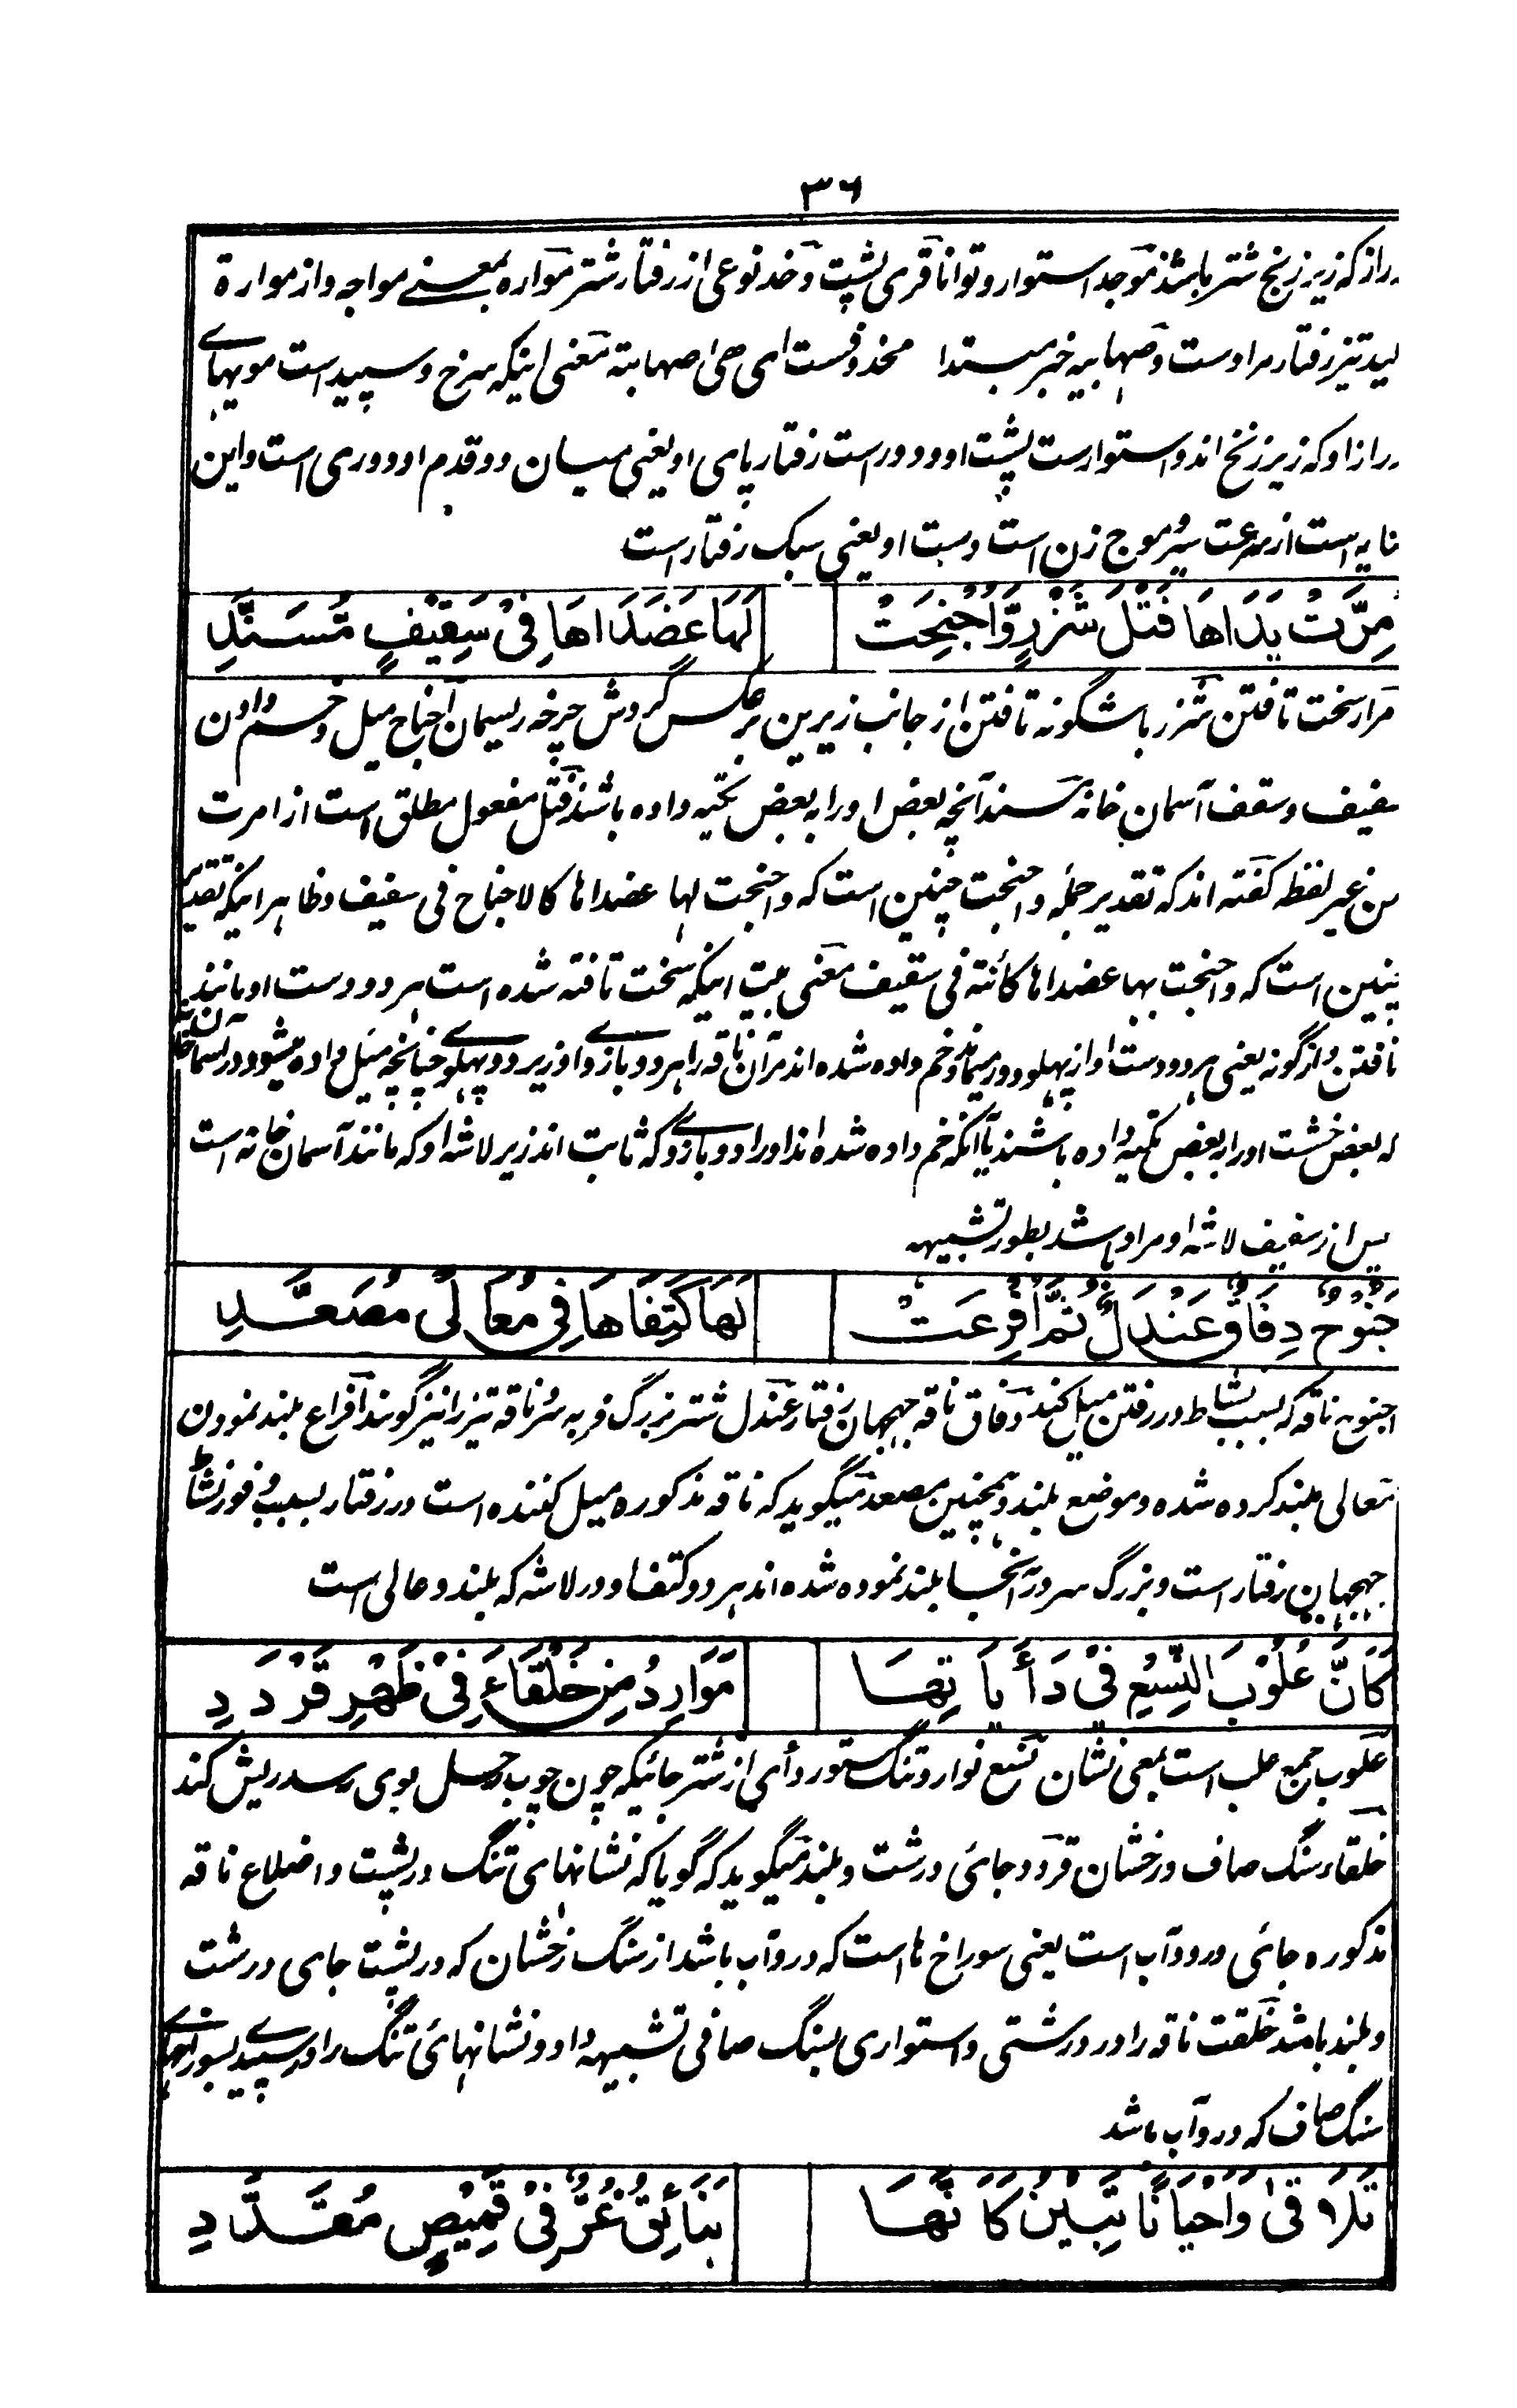 ۳۶
راز که زیر زنخ شتر باشد موجد استوار و توانا قری پشت وخد نوعی از رفتار شتر مواره بمعنے مواجه و از مواره
تیز رفتار مراد ست و صهابیه خبر مبتدا محذوفست ای هی صهابیته معنی اینکه سرخ و سپید است مویهاے
راز او که زیر زنخ اند و استوارست پشت او و دور است رفتار پای او یعنی میان دو قدم او دوری است و این
است از سرعت سیر و موج زن است دست او یعنی سبک رفتار است
مِرَّتْ يَدَاهَا فَتْلَ شَزْرٍ وَّاُجْنِحَتْ لَهَا عَضَدَاهَا فِيْ سَقِيْفٍ مُّسَنَّدِ
مرار سخت تافتن شزر باشگونه تافتن از جانب زیرین برعکس گردش چرخه ریسمان اجناح میل و خم دادن
سقیف و سقف آسمان خانه مسند آنچه بعض او را به بعض تکیه داده باشند فتل مفعول مطلق است از امرت
من غیر لفظه گفته اند که تقدیر جمله و اجنحت چنین است که و اجنحت لها عضداها کالاجناح فی سقیف و ظاهر اینکه تقدیر
چنین است که و اجنحت بها عضداها کائنة فی سقیف معنی بیت اینکه سخت تافته شده است هر دو دست او مانند
تافتن واژگونه یعنی هر دو دست او از پهلو دور میماند و خم داده شده اند مر آن ناقه را هر دو بازے او زیر دو پهلوے چنانچه میل داده میشود در آسمان خانه
که بعض خشت او را به بعض تکیه داده باشند یا آنکه خم داده شده اند او را دو بازوے که ثابت اند زیر لاشه او که مانند آسمان خانه است
پس از سقیف لاشه او مراد باشد بطور تشبیه
جَنُوْحٌ دِفَاقٌ عَنْدَلٌ ثُمَّ اُفْرِعَتْ لَهَا كَتِفَاهَا فِيْ مُعَالًى مُصَعَّدِ
جنوح ناقه که بسبب نشاط در رفتن میل کند دفاق ناقه جهجهان رفتار عندل شتر بزرگ فربه سر و ناقه تیز را نیز گویند افراع بلند نمودن
معالی بلند کرده شده و موضع بلند و همچنین مصعد میگوید که ناقه مذکوره میل کننده است در رفتار بسبب وفور نشاط
جهجهان رفتار است و بزرگ سر و ترانحسا بلند نموده شده اند هر دو کتف او در لاشه که بلند و عالی است
كَاَنَّ عُلُوْبَ النِّسْعِ فِيْ دَأَيَاتِهَا مَوَارِدُ مِنْ خَلْقَاءَ فِيْ ظَهْرِ قَرْدَدِ
علوب جمع علب است بمعنی نشان نسع نوار و تنگ ستور دأی از شتر جائیکه چون چوب رحل بوی رسد ریش کند
خلقاء سنگ صاف درخشان قردد جائی درشت و بلند میگوید که گویا که نشانهای تنگ در پشت و اضلاع ناقه
مذکوره جائی ورود آب است یعنی سوراخ ها است که درو آب باشد از سنگ رخشان که در پشت جای درشت
و بلند باشد خلقت ناقه را در درشتی و استواری بسنگ صافی تشبیه داد و نشانهائ تنگ را در سپیدے بسوراخهاے
سنگ صاف که درو آب باشد
تَلَاقٰى وَاَحْيَانًا تَبِيْنُ كَاَنَّهَا بَنَائِقُ غُرٌّ فِيْ قَمِيْصٍ مُقَدَّدِ